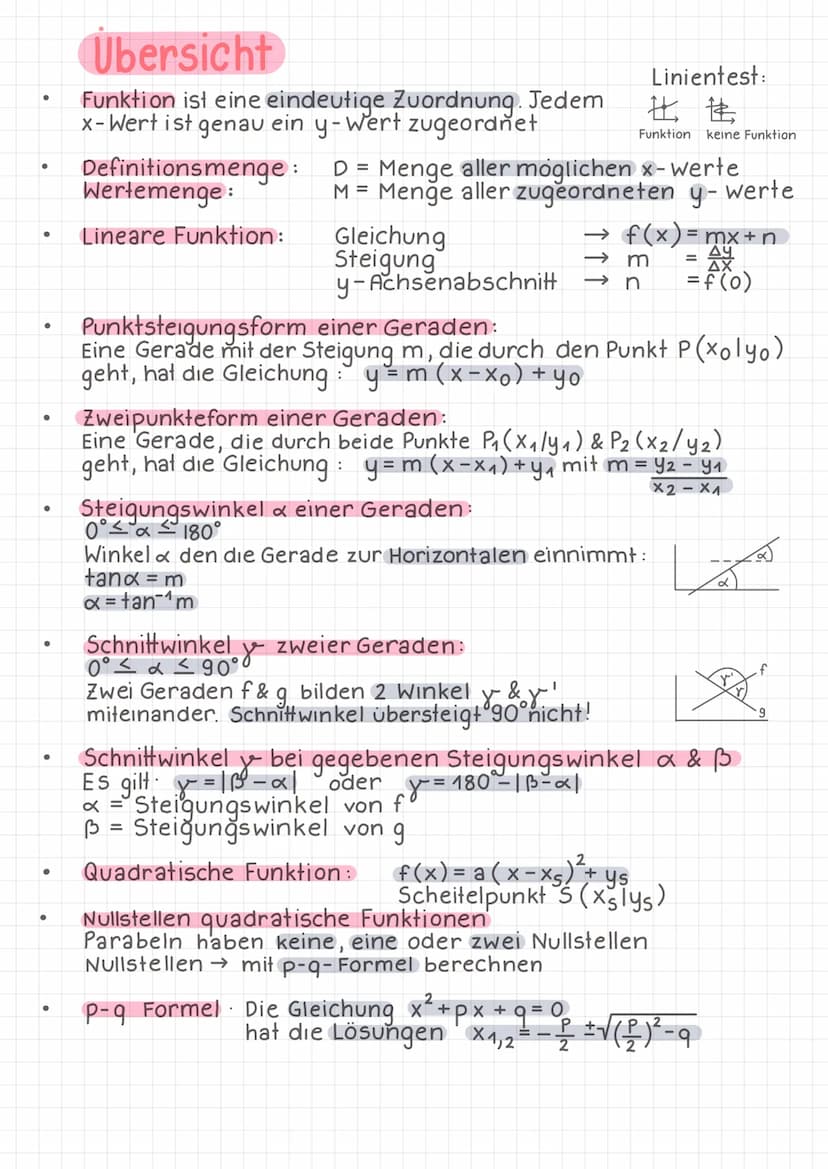 Übersicht
Linientest:
Funktion   keine Funktion
• Funktion ist eine eindeutige Zuordnung. Jedem
x-Wert ist genau ein y-Wert zugeordnet
• Definitionsmenge: D = Menge aller möglichen x-Werte
Wertemenge: M = Menge aller zugeordneten y-Werte
• Lineare Funktion: Gleichung → f(x) = mx + n
Steigung → m = Δy/Δx
y-Achsenabschnitt → n = f(0)
• Punktsteigungsform einer Geraden:
Eine Gerade mit der Steigung m, die durch den Punkt P(x₀|y₀)
geht, hat die Gleichung: y = m(x-x₀) + y₀
• Zweipunkteform einer Geraden:
Eine Gerade, die durch beide Punkte P₁(x₁/y₁) & P₂(x₂/y₂)
geht, hat die Gleichung: y = m(x-x₁) + y₁ mit m = (y₂ - y₁)/(x₂ - x₁)
• Steigungswinkel α einer Geraden:
0° ≤ α ≤ 180°
Winkel α den die Gerade zur Horizontalen einnimmt:
α
α
tanα = m
α = tan⁻¹m
• Schnittwinkel γ zweier Geraden:
0° ≤ α ≤ 90°
Zwei Geraden f & g bilden 2 Winkel γ & γ'
miteinander. Schnittwinkel übersteigt 90° nicht!
f
γ'
γ
g
• Schnittwinkel γ bei gegebenen Steigungswinkel α & β
Es gilt: γ = |β-α| oder γ = 180° - |β-α|
α = Steigungswinkel von f
β = Steigungswinkel von g
• Quadratische Funktion: f(x) = a(x-xₛ)² + yₛ
Scheitelpunkt S(xₛ|yₛ)
• Nullstellen quadratische Funktionen
Parabeln haben keine, eine oder zwei Nullstellen
Nullstellen → mit p-q-Formel berechnen
• p-q Formel: Die Gleichung x² + px + q = 0
hat die Lösungen x₁,₂ = -p/2 ± √((p/2)² - q)